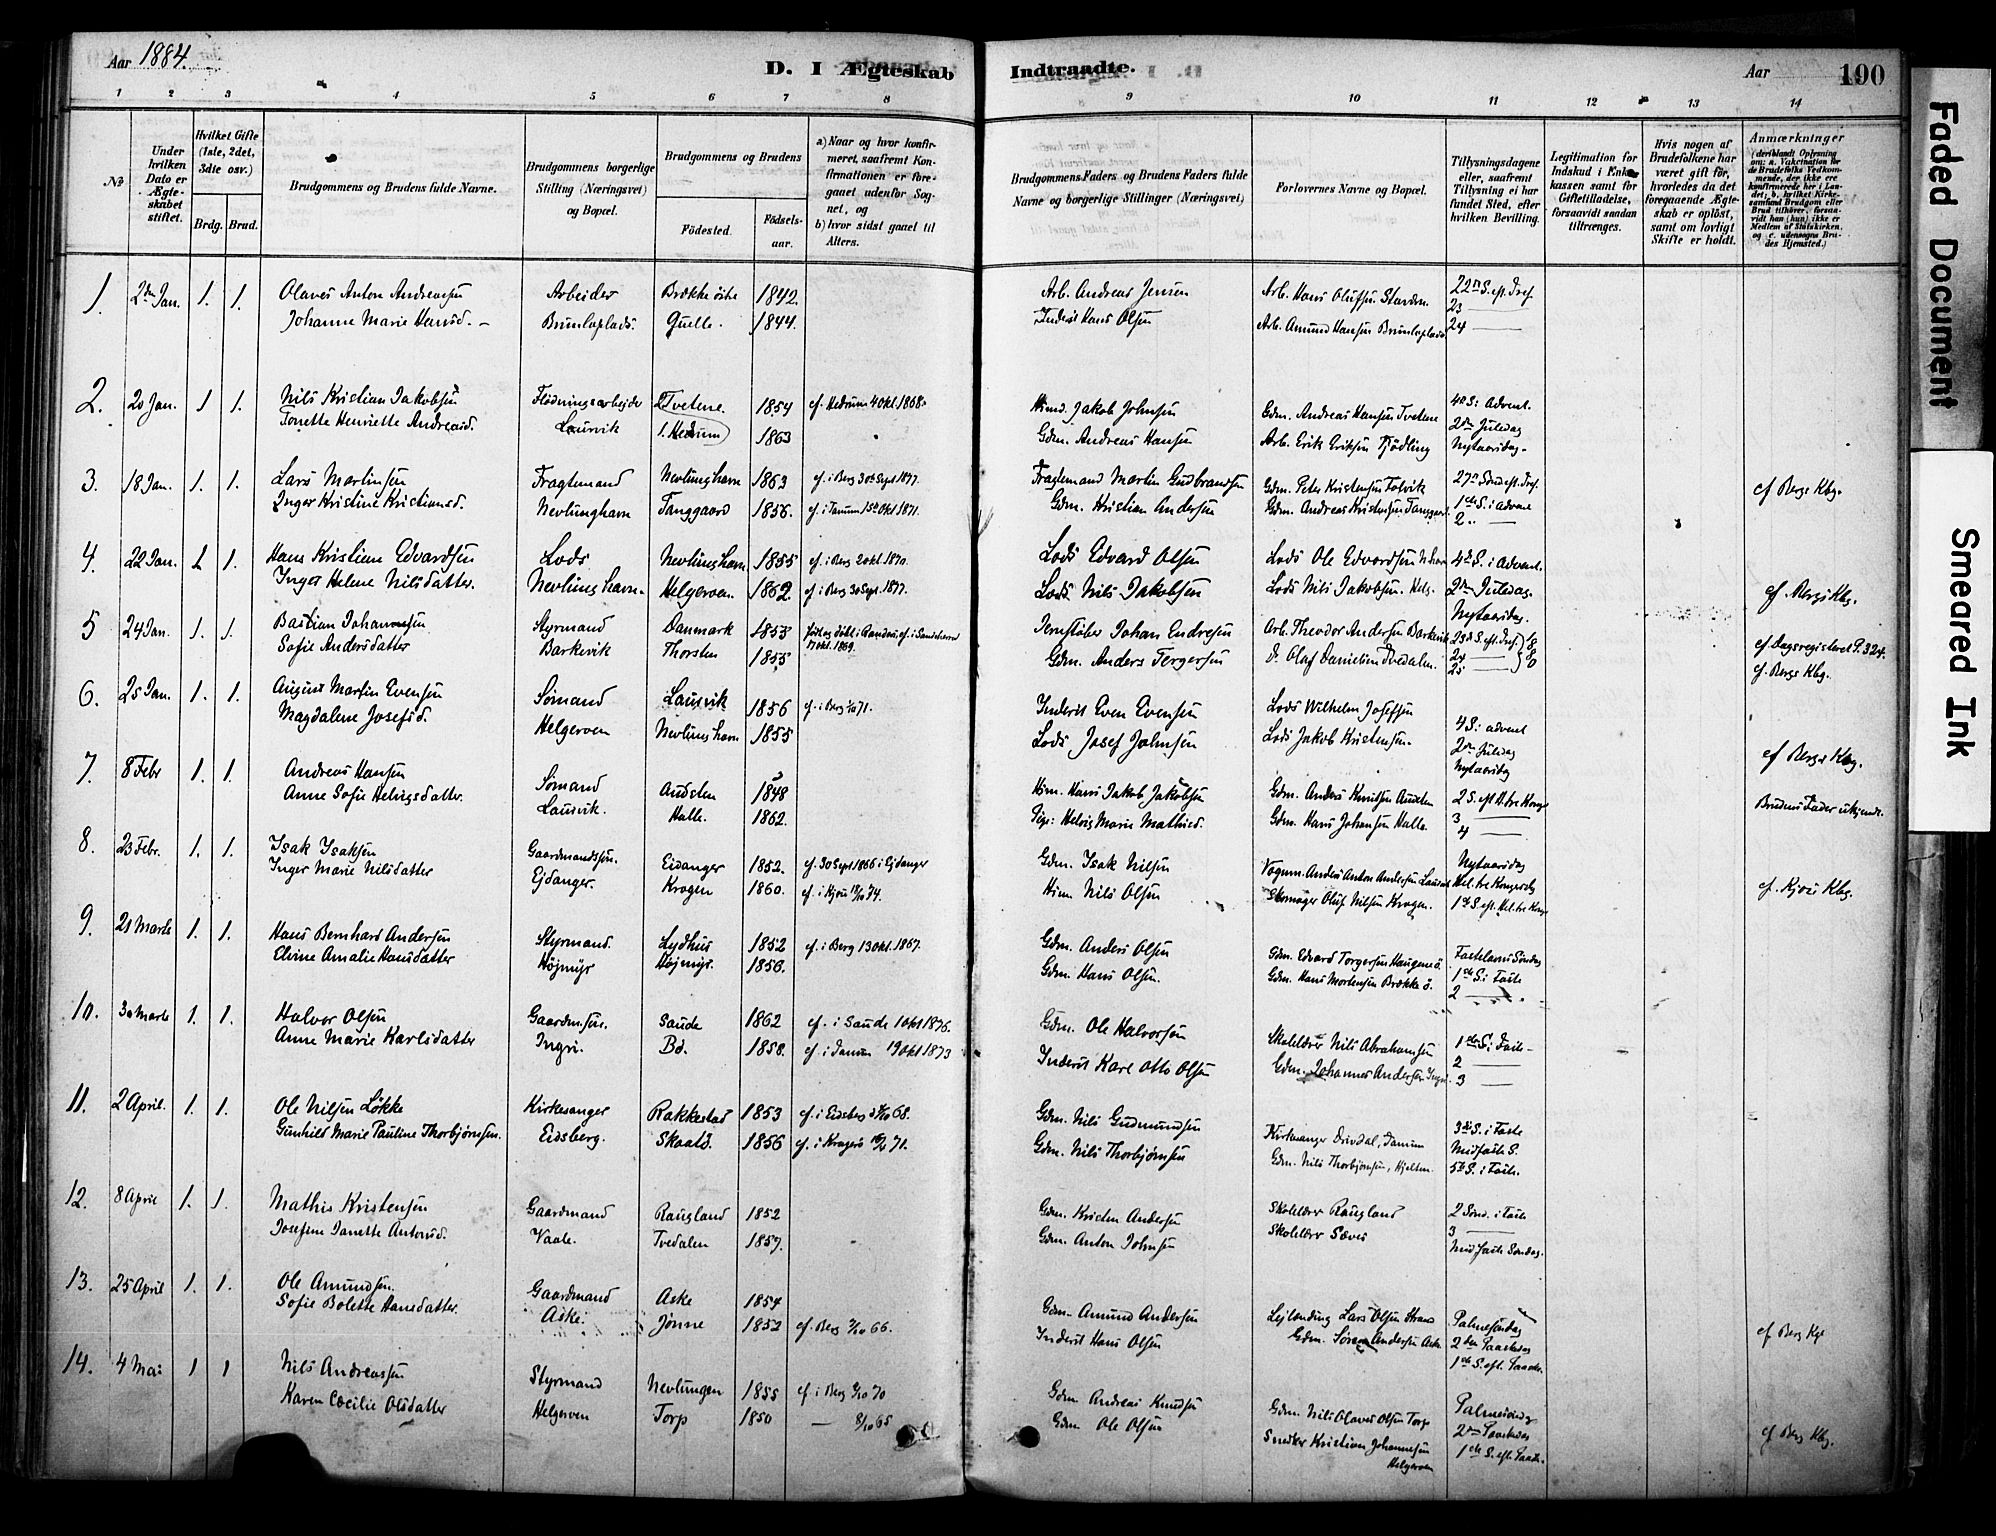 Aar 1884.
D. I Ægteskab
Indtraadte.
Aar
190
1 2 3 4 5 6 7 8
9 10 11 12 13 14
No
Under hvilken Dato er Ægteskabet stiftet.
Hvilket Gifte (1ste, 2det, 3die osv.)
Brdg. Brud.
Brudgommens og Brudens fulde Navne.
Brudgommens borgerlige Stilling (Næringsvei) og Bopæl.
Brudgommens og Brudens
Fødested.
Fødselsaar.
a) Naar og hvor konfirmeret, saafremt Konfirmationen er foregaaet udenfor Sognet, og
b) hvor sidst gaaet til Alters.
Brudgommens Faders og Brudens Faders fulde Navne og borgerlige Stillinger (Næringsvei)
Forlovernes Navne og Bopæl.
Tillysningsdagene eller, saafremt Tillysning ei har fundet Sted, efter hvilken Bevilling.
Legitimation for Indskud i Enkekassen samt for Giftetilladelse, forsaavidt saadan tiltrænges.
Hvis nogen af Brudefolkene har været gift før, hvorledes da det foregaaende Ægteskab er opløst, samt om lovligt Skifte er holdt.
Anmærkninger
1. 2den Jan. 1. 1. Olaves Anton Andreassen Arbeider Brække østre 1842. Arb. Andreas Jensen Arb. Hans Olufsen 22n S. eft. Tref.
Johanne Marie Hansd. Brunlaplads. 1844. Inderst Hans Olsen Arb. Amund Hansen Brunlaplads 23
24
2. 20 Jan. 1 1. Nils Kristian Jakobsen Flødningsarbeider 2 Tvetene. 1854 cf. Hedrum 4 Okt 1868. Jakob Johnsen Gdm. Andreas Hansen Tvetene 4n S. i Advent.
Tonette Henriette Andreasd. Laurvik 1. Hedrum 1863 Gdm. Andreas Hansen Arb. Erik Eriksen Tjødling 2den Juledag
Nytaarsdag.
3. 18 Jan. 1. 1. Lars Martinsen Fragtemand Nevlunghavn 1863 cf. i Berg 30 Sept 1877. Fragtemand Martin Gudbrandsen Gdm. Peter Kristensen cf Bergs Kbg.
Inger Kristine Kristiansd. Nevlunghavn 1856. cf. i Tanum 15 Okt 1871. Gdm. Kristian Andersen Gdm. Andreas Kristensen 1ste S. i advent
2
4. 22 Jan. 1 1. Hans Kristian Edvardsen Lods Nevlunghavn 1855 cf. i Berg 2 Okt. 1870. Lods Edvard Olsen Lods Ole Edvardsen 4de S. i Advent.
Inger Helene Nilsdatter. Nevlunghavn. Helgeroen. 1862. cf. i Berg 30 Sept. 1877. Lods Nils Jakobsen Lods Nils Jakobsen. Helg. 2den Juledag. cf. Bergs Kbg.
Nytaarsdag.
5 24 Jan. 1. 1. Bastian Johannsen Styrmand Danmark 1853 Johan Endresen Arb. Theodor Andersen Barkevik 23d S. eft. Tref. cf. Dagsregisteret P. 324.
Sofie Andersdatter Barkevik Thorsten 1855 Gdm. Anders Tergersen Olaf Danielsen Tvedalen. 24
25 cf. Bergs Kbg.
6. 25 Jan. 1. 1. August Martin Evensen Sømand Laurvik 1856 cf. i Berg 71. Inderst Even Evensen Lods Wilhelm Josefsen 4 S. i advent
Magdalene Josefsd. Helgeroen Nevlunghavn 1855 Lods Josef Johnsen Lods Jakob Kristensen. 2den Juledag
Nytaarsdag cf Bergs Kbg.
7. 8 Febr 1. 1. Andreas Hansen Sømand 1848 Hans Jakob Jakobsen Gdm. Anders Knudsen 2 S. eft H. tre Konger
Anne Sofie Helvigsdatter. Laurvik. Halle. 1862. Pige: Helvig Marie Mathisd. Gdm. Hans Johansen Halle. 3 Brudens Fader ukjendt.
4
8. 23 Febr. 1. 1. Isak Isaksen Gaardmandssøn. Eidanger 1852. cf. 30 Sept 1866 i Ejdanger Gdm. Isak Nilsen Vognm. Anders Anton Andersen Nytaarsdag
Inger Marie Nilsdatter Ejdanger. Krogen 1860. cf. i Kjose 74. Nils Olsen Oluf Nilsen Krogen. Hel. tre Kongersdg cf. Kjose Kbg.
1ste S. eft. Hel. tre Kong.
9. 21 Marts 1. 1. Hans Bernhard Andersen Styrmand. Lydhus 1852 cf. i Berg 13 Okt. 1867. Gdm. Anders Olsen Gdm. Edvard Torgersen Haugene ø. Fastelavns Søndag
Elvine Amalie Hansdatter Højmyr Højmyr. 1856. Gdm. Hans Olsen. Gdm. Hans Mortensen Brække ø. 1ste S. i Faste
2
10. 30 Marts 1. 1. Halvor Olsen Gaardmsøn. Saude 1862 cf. i Saude 1 Okt 1876. Gdm. Ole Halvorsen Skolelærer Nils Abrahamsen 1ste S. i Faste
Anne Marie Karlsdatter Ingri. Bd. 1858. cf. i Tanum 19 Okt 1873 Inderst Karl Otto Olsen Gdm. Johannes Andersen Ingri 2
3
11. 2 April. 1. 1. Ole Nilsen Løkke Kirkesanger Rakkestad 1853 cf. i Eidsberg 68. Gdm. Nils Gudmundsen Kirkesanger Drivdal, Tanum 3die S. i Faste
Gunhild Marie Pauline Thorbjørnsen. Eidsberg. 1856 cf. i Kragerø 71. Gdm. Nils Thorbjørnsen Gdm. Nils Thorbjørnsen, Midfaste S.
5te S. i Faste.
12. 8 April 1. 1. Mathis Kristensen Gaardmand Raugland 1852 Gdm. Kristen Andersen Skolelærer Raugland 2 Sønd. i Faste
Josefine Janette Antonsd. Vaale. Tvedalen 1857. Gdm. Anton Johnsen Skolelærer 3
Midfaste Søndag.
13. 25 April 1. 1. Ole Amundsen. Gaardmand Aske 1854 Gdm. Amund Andersen Lejlending Lars Olsen Palmesøndag
Sofie Bolette Hansdatter. Aske. Jonne 1852 cf. Berg 66. Inderst Hans Olsen Gdm. Søren Andersen Aske 2den Paaskedag cf Berg Kbg
1ste S. eft. Paaske.
14. 4 Mai 1 1 Nils Andreassen Styrmand Nevlungen 1855 cf. i Berg 70 Gdm Andreas Knudsen Gdm. Nils Olaves Olsen Torp Palmesøndag
Karen Cæcilie Olsdatter Helgeroen Torp 1850 8/10 65 Gdm Ole Olsen Snedker Kristian Johannesen 2den Paaskedag cf Berg Kbg.
Helgeroen 1ste S. eft. Paaske.
Faded Document
Smeared Ink